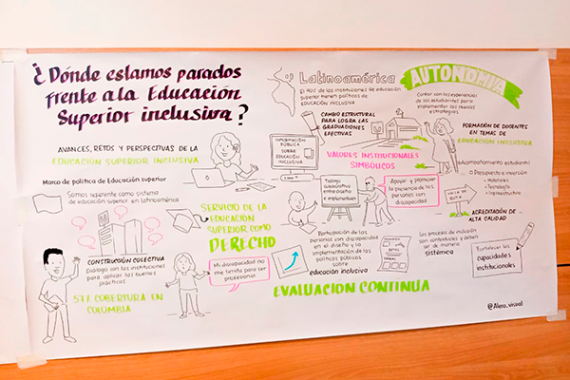 ¿Dónde estamos parados
frente a la Educación
Superior inclusiva?
AVANCES, RETOS Y PERSPECTIVAS DE LA
EDUCACIÓN SUPERIOR INCLUSIVA
Marco de política de Educación superior
Somos referente como sistema
de educación superior en latinoamérica
CONSTRUCCIÓN COLECTIVA
Diálogo con las instituciones
para aplicar las buenas
prácticas
577 COBERTURA EN
COLOMBIA
SERVICIO DE LA
EDUCACIÓN
SUPERIOR COMO
DERECHO
Mi discapacidad no
me limita para ser
profesional
Latinoamérica
de las instituciones de educación
superior tienen políticas de
EDUCACIÓN INCLUSIVA
CAMBIO ESTRUCTURAL
PARA LOGRAR LAS
GRADUACIONES
EFECTIVAS
INFORMACIÓN
PÚBLICA
SOBRE
EDUCACIÓN
INCLUSIVA
VALORES INSTITUCIONALES
SIMBÓLICOS
Trabajo
colaborativo
diseñado
e implementado
Apoyar y promover
la presencia de las
personas con
discapacidad
Participación de las
personas con discapacidad
en el diseño y la
implementación de las
políticas públicas
sobre
educación inclusiva
EVALUACIÓN CONTINUA
AUTONOMÍA
Contar con las experiencias
de los estudiantes para
implementar las nuevas
estrategias
FORMACIÓN DE DOCENTES
EN TEMAS DE
EDUCACIÓN INCLUSIVA
Acompañamiento estudiantil
Presupuesto e inversión
Materiales
Tecnología
Infraestructura
HOJA DE RUTA
ACREDITACIÓN DE
ALTA CALIDAD
Los procesos de inclusión
son contextuales y deben
ser de manera
sistémica
Fortalecer las
capacidades
institucionales
@Alero_visual